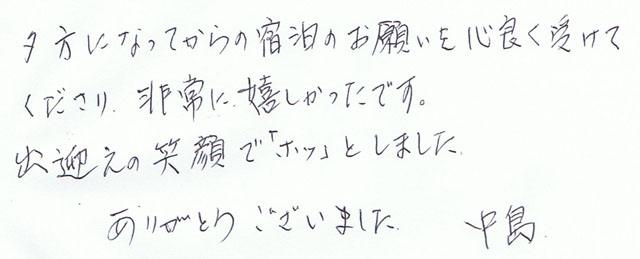 夕方になってからの宿泊のお願いを心良く受けて
くださり、非常に嬉しかったです。
出迎えの笑顔で「ホッ」としました。
ありがとうございました。 中島